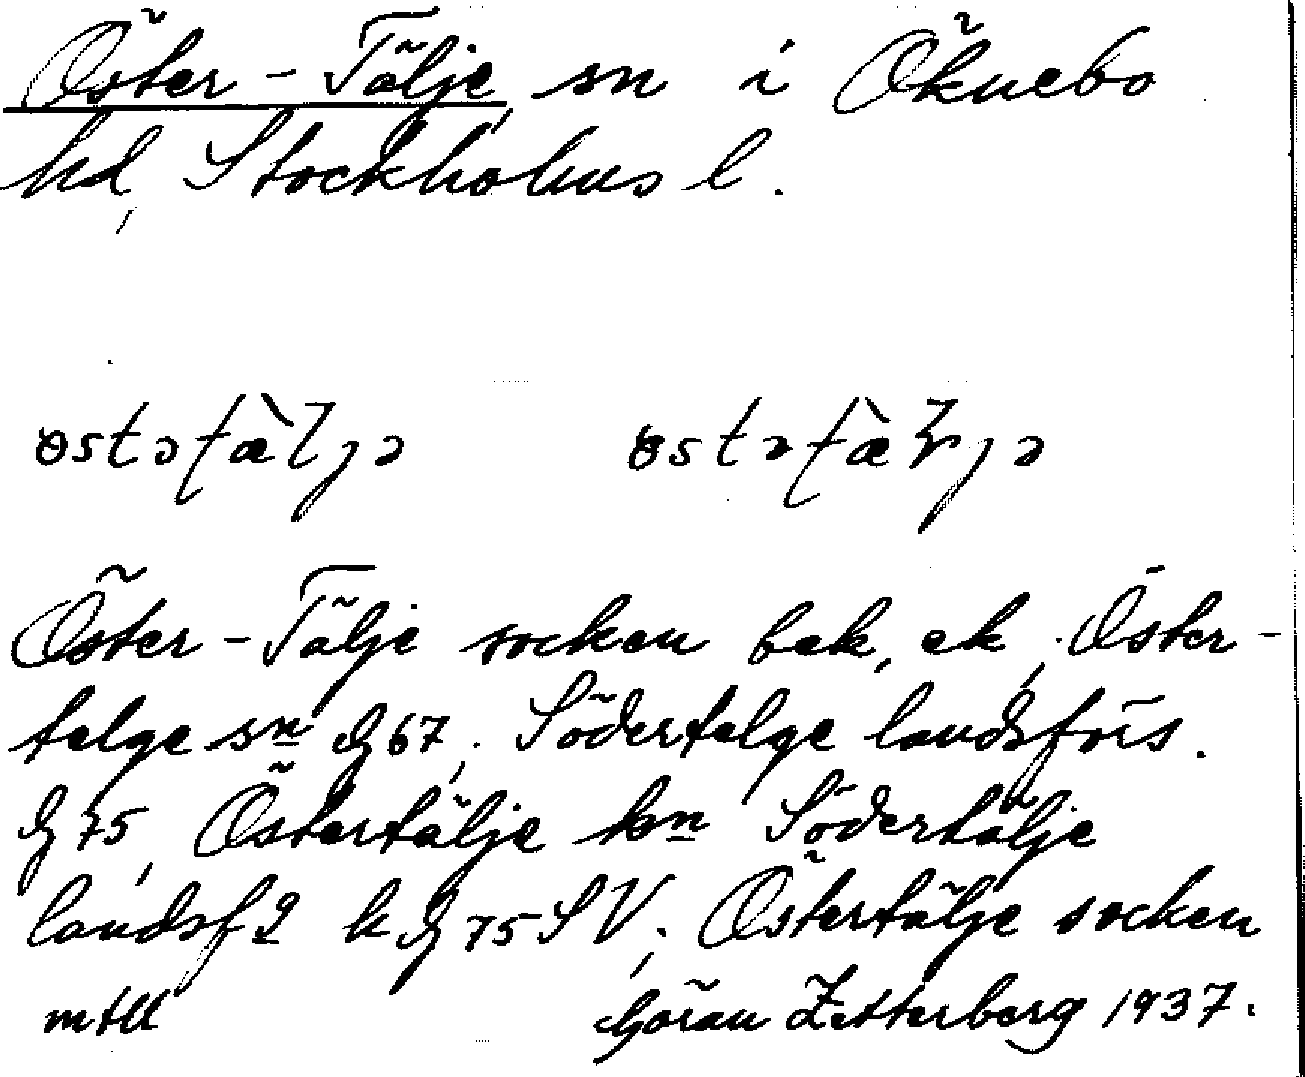 Öster-Tälje, sn i Öknebo
hd, Stockholms l.
östətæ̀ljə östətæ̀ɽjə
Öster-Tälje socken bek, ek; Öster-
telge sn GS 67; Södertelge landsförs.
75, Östertälje kn Södertälje
landsf 2 k 75 SV; Östertälje socken
mtll Göran Zetterberg 1937.